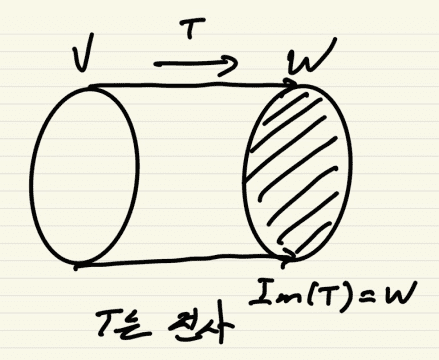 T
V W
Im(T)=W
T는 전사